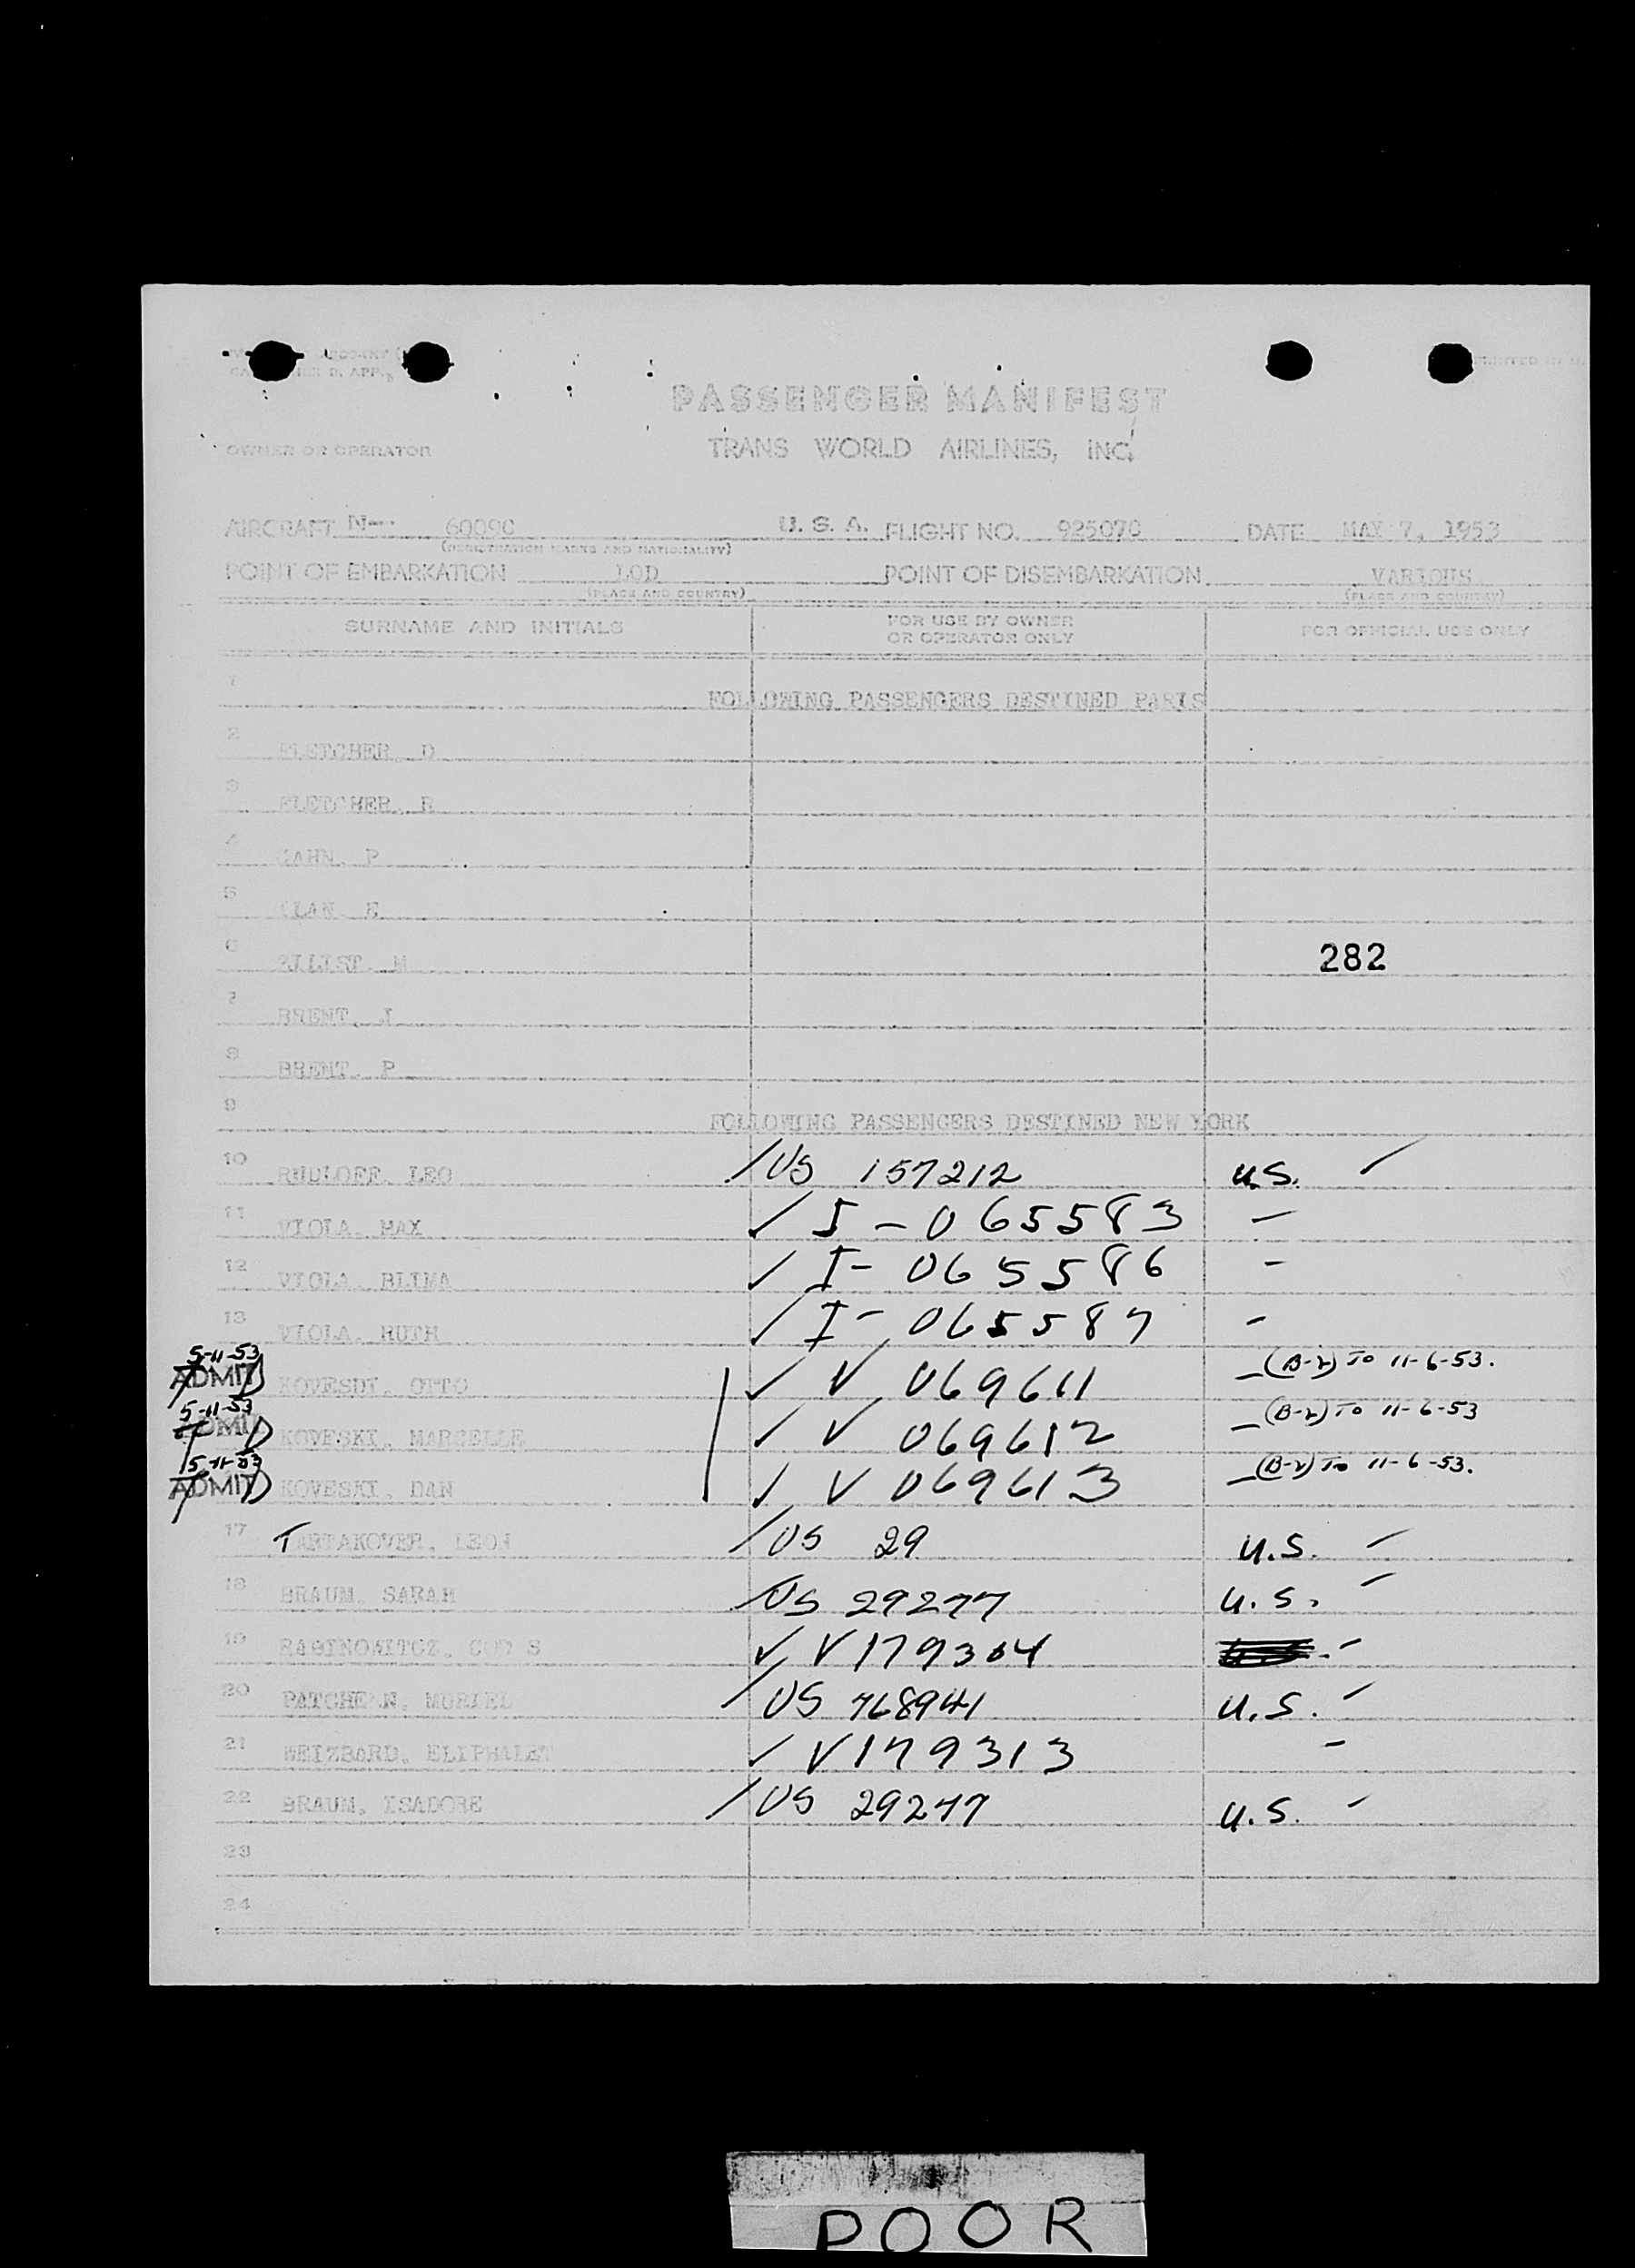 PRINTED IN U.
PASSENGER MANIFEST
OWNER OR OPERATOR TRANS WORLD AIRLINES, INC.
AIRCRAFT N-- 60090 U. S. A. FLIGHT NO. 925070 DATE MAY 7, 1953
(REGISTRATION MARKS AND NATIONALITY)
POINT OF EMBARKATION LOD POINT OF DISEMBARKATION VARIOUS
(PLACE AND COUNTRY) (PLACE AND COUNTRY)
SURNAME AND INITIALS FOR USE BY OWNER OR OPERATOR ONLY FOR OFFICIAL USE ONLY
1 FOLLOWING PASSENGERS DESTINED PARIS
2 FLETCHER, D
3 FLETCHER, R
4 CAHN, P
5
6 ZILIST, M 282
7 BRENT, J
8 BRENT, P
9 FOLLOWING PASSENGERS DESTINED NEW YORK
10 RUDLOFF, LEO / US 157212 U.S. ✓
11 VIOLA, MAX ✓ I - 065583 -
12 VIOLA, BLIMA ✓ I - 065586 -
13 VIOLA, RUTH ✓ I - 065587 -
5-11-53
ADMIT KOVESDI, OTTO ✓ V 069611 - (B-2) TO 11-6-53.
5-11-53
ADMIT KOVESKI, MARCELLE ✓ V 069612 - (B-2) TO 11-6-53
5-11-53
ADMIT KOVESKI, DAN ✓ V 069613 - (B-2) TO 11-6-53.
17 TARTAKOVER, LEON / US 29 U.S. -
18 BRAUM, SARAH / US 29277 U.S. -
19 ✓ V 179304 -
20 PATCHE N, MURIEL / US 768941 U.S. -
21 WEIZBARD, ELIPHALET ✓ V 179313 -
22 BRAUM, ISADORE / US 29277 U.S. -
23
24
POOR